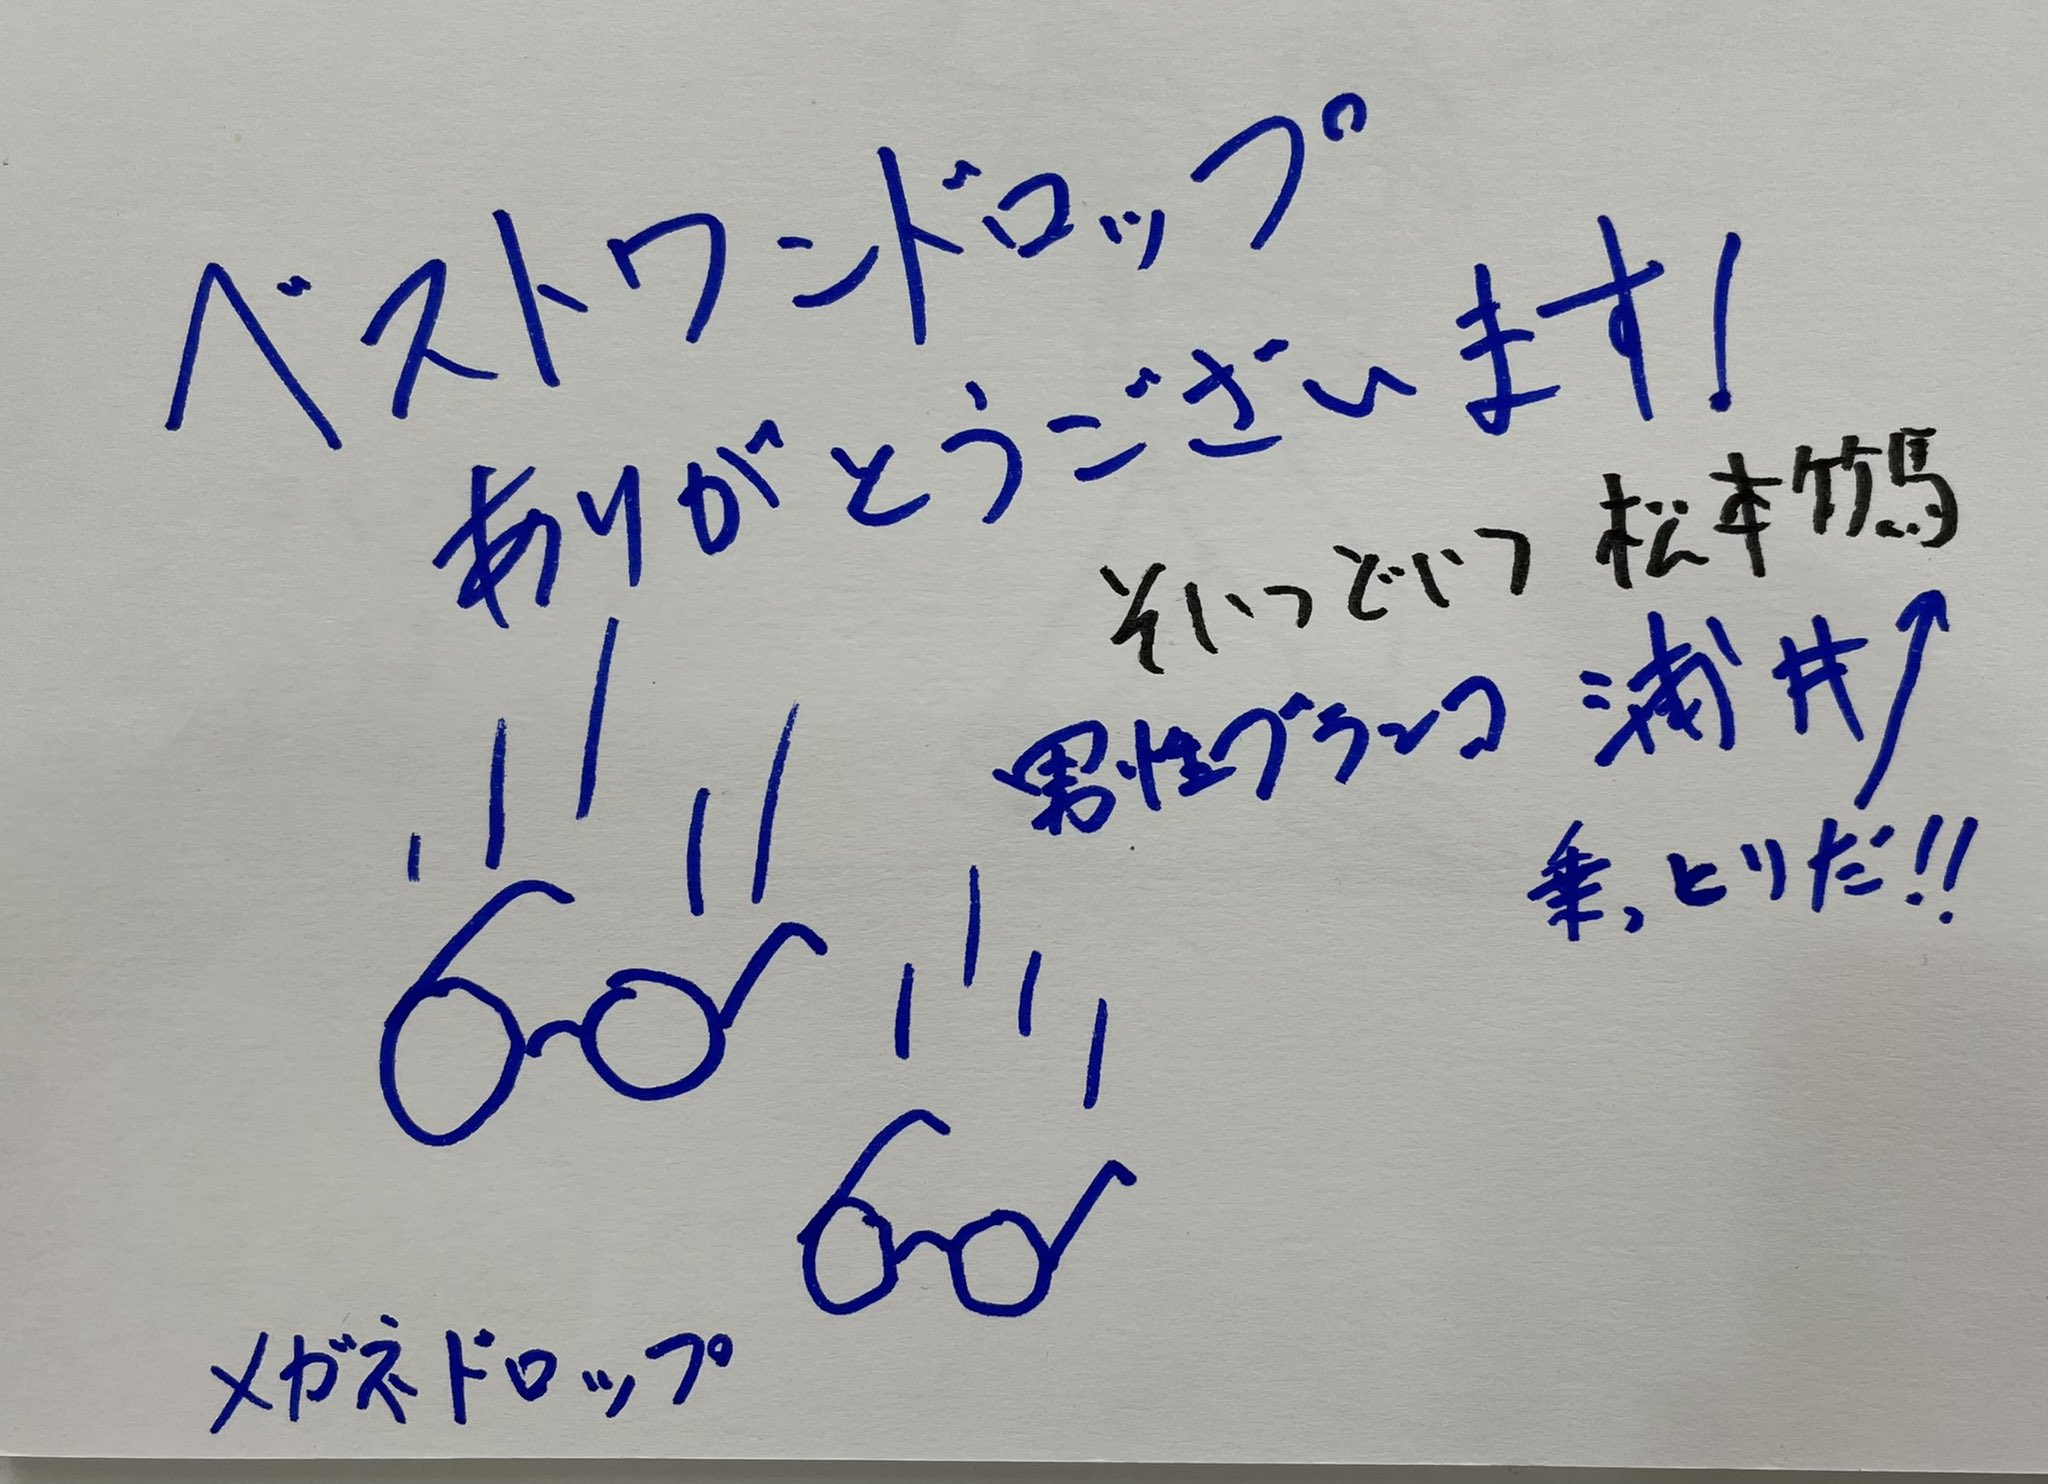 ベストワンドロップ
ありがとうございます!
そいつどいつ 松本竹馬
男性ブランコ 浦井
乗っとりだ!!
メガネドロップ